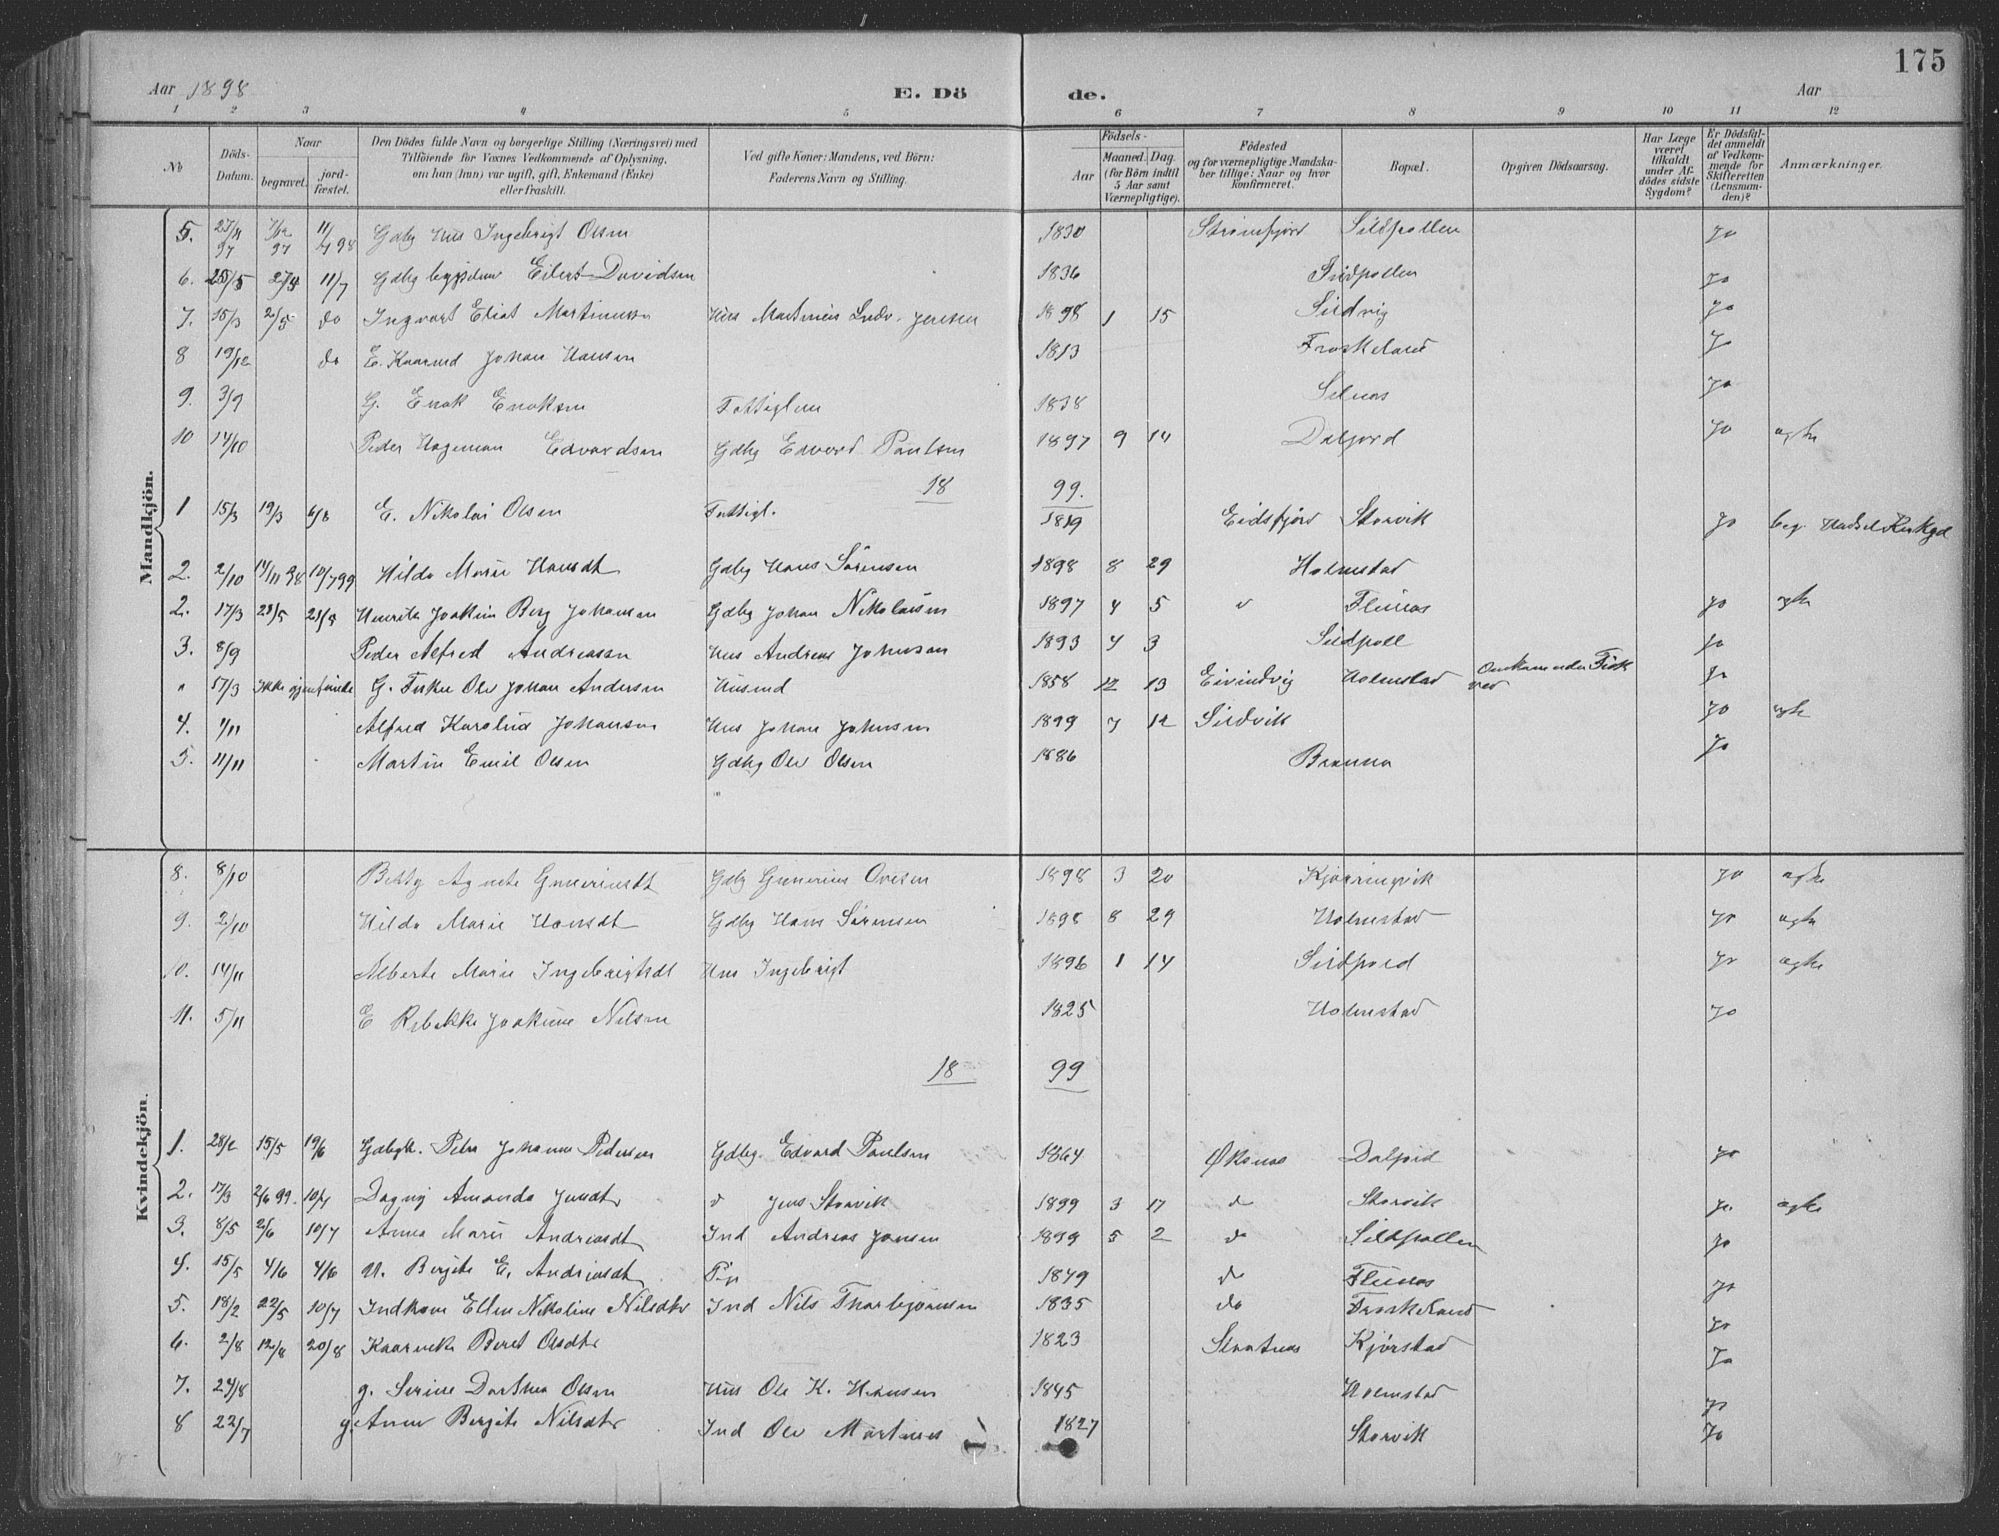 175
Aar 1898 E. Dö de. Aar
1 2 3 4 5 6 7 8 9 10 11 12
No Döds-Datum. Naar begravet. jord-fæstet. Den Dödes fulde Navn og borgerlige Stilling (Næringsvei) med Tilföiende for Voxnes Vedkommende af Oplysning, om han (hun) var ugift, gift, Enkemand (Enke) eller fraskilt. Ved gifte Koner: Mandens, ved Börn: Faderens Navn og Stilling. Födsels- Aar Maaned. Dag. (for Börn indtil 5 Aar samt Værnepligtige). Födested og for værnepligtige Mandska-ber tillige: Naar og hvor konfirmeret. Bopæl. Opgiven Dödsaarsag. Har Læge været tilkaldt under Af-dödes sidste Sygdom? Er Dödsfal-det anmeldt af Vedkom-mende for Skifteretten (Lensman-den)? Anmærkninger.
Mandkjön.
5. 97 97 11/7 98 Gdbg Hus Ingebrigt Olsen 1830 Strømfjord Sildpollen Jo
6. 25/5 11/7 Gdbg Eilert Davidsen 1836 Sildpollen Jo
7. 15/3 2/5 do Ingvart Eliot Martinussen Hus Martinus Ludv. Jensen 1898 1 15 Sildvig Jo
8 19/12 do E. Kaarmd Johan Hansen 1813 Froskeland Jo
9. 3/9 G. Enok Enoksen Fattiglem 1838 Jo
10 14/10 Peder Hageman Edvardsen Gdbg Edvard Paulsen 1897 9 14 Dalfjord Jo agke
18 99.
1 15/3 19/3 6/8 E. Nikolai Olsen Fattigl. 1819 Eidsfjord Storvik Jo beg. Hadsel Kirkgd
2. 2/10 14/11 98 10/7 99 Hilda Marie Hansdt Gdbg Hans Sörensen 1898 8 29 Holmstad
2. 17/3 23/5 Henrik Joakim Berg Johansen Gdbg Johan Nikolaisen 1897 4 5 Flinæs Jo agke
3. 8/9 Peder Alfred Andreassen Hus Andreas Johnsen 1893 4 3 Sildpoll Jo
" 17/3 Ikke gjenfunde G. Fisker Ole Johan Andersen Husmd 1858 12 13 Eivindvig Holmstad Omkom under Fisk Jo
4. 1/11 Alfred Karolius Johansen Hus Johan Johnsen 1899 7 12 Sildvik Jo agke
5. 11/11 Martin Emil Olsen Gdbg Ole Olsen 1886 Brenna Jo
Kvindekjön.
8. 8/10 Betty Agnete Guneriusdt Gdbg Gunerius Ovesen 1898 3 20 Kjörringvik Jo agke
9. 2/10 Hilda Marie Hansdt Gdbg Hans Sørensen 1898 8 29 Holmstad Jo agke
10. 14/11 Alberte Marie Ingebrigtsdt Hus Ingebrigt 1896 1 14 Jo agke
11. 5/11 E Rebekke Joakime Nilsen 1825 Holmstad Jo
18 99
1. 28/2 15/5 19/6 Gdbgk. Petra Johanna Pedersen Gdbg. Edvard Paulsen 1864 Øksnæs Jo
2. 17/3 2/6 99. 10/7 Dagny Amanda Jensdtr Jens Storvik 1899 3 17 d Storvik Jo agke
3. 8/5 2/6 10/7 Anna Marie Andreasdt Ind Andreas Jensen 1899 5 2 do Sildpollen Jo
4. 15/5 4/6 4/6 U. Bergite E. Andreasdt Pige 1849 do Flinæs Jo
5. 18/2 22/5 10/7 Indkone Ellen Nikoline Nilsdtr Ind Nils Thorbjörnsen 1835 do Froskeland Jo
6. 2/8 12/8 20/8 Kaarenke Beret Olsdtr 1823 Kjørstad Jo
7. 24/8 g. Serine Dorthea Olsen Hus Ole K. Hansen 1845 Holmstad Jo
8 22/7 g. Anne Bergite Nilsdtr Ind Ole Martinus 1827 Storvik Jo